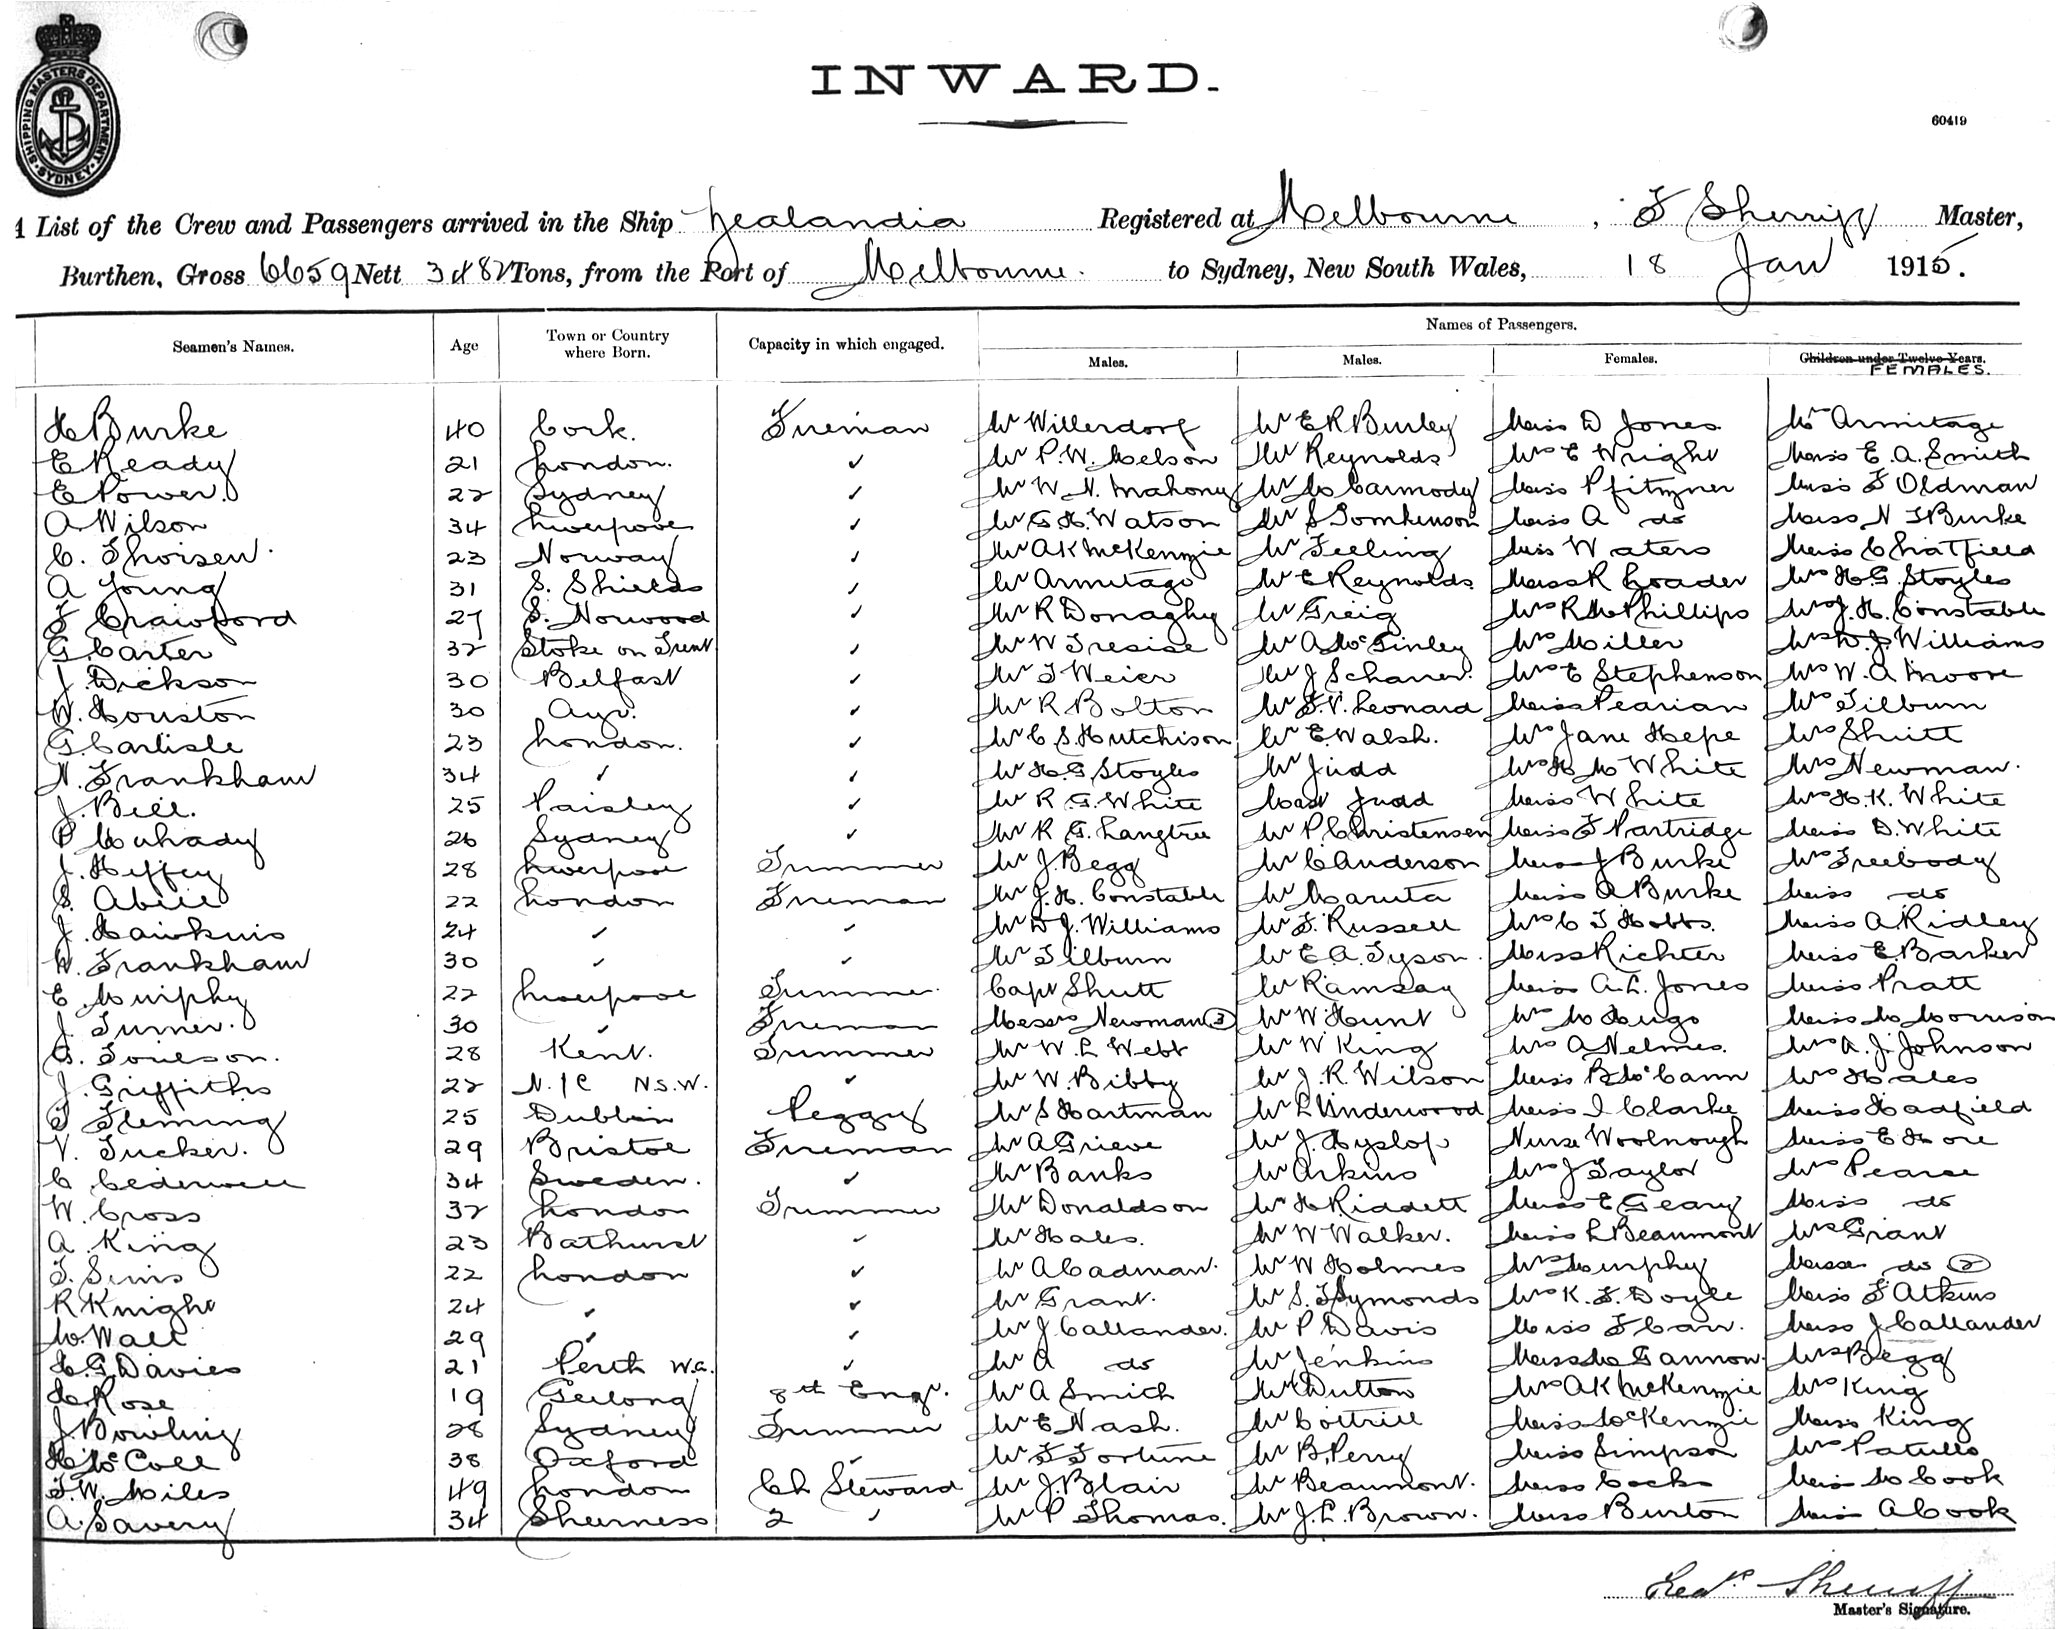 SHIPPING MASTERS DEPARTMENT. SYDNEY.
INWARD.
60419
A List of the Crew and Passengers arrived in the Ship Zealandia Registered at Melbourne, F Sherriff Master,
Burthen, Gross 6659 Nett 3482 Tons, from the Port of Melbourne. to Sydney, New South Wales, 18 Jan 1915.
Names of Passengers.
Seamen's Names. Age Town or Country where Born. Capacity in which engaged. Males. Males. Females. Children under Twelve Years. FEMALES.
H Burke 40 Cork. Fireman Mr Willerdorf Mr E R Burley Miss D Jones Mrs Armitage
E Ready 21 London. ✓ Mr P.W. Melson Mr Reynolds Mrs E Wright Miss E.A. Smith
E Power. 22 Sydney ✓ Mr W.N. Mahony Mr M Carmody Miss Pfitzner Miss F Oldman
A Wilson 34 Liverpool ✓ Mr G.H. Watson Mr S Tomkinson Miss A do Miss N T Burke
C. Thoisen. 23 Norway ✓ Mr A K McKenzie Mr Feeling Miss Waters Miss Chatfield
A Young 31 S. Shields ✓ Mr Armitage Mr E Reynolds Miss R Loader Mrs H.G. Stoyles
F Crawford 27 S. Norwood ✓ Mr R Donaghy Mr Greig Mrs R M Phillips Mrs J.H. Constable
G. Carter 32 Stoke on Trent ✓ Mr W Tresise Mr A McGinley Mrs Miller Mrs D.J. Williams
J. Dickson 30 Belfast ✓ Mr T Weier Mr J Scharer. Mrs E Stephenson Mrs W.A Moore
W. Houston 30 Ayr. ✓ Mr R Bolton Mr F.V. Leonard Miss Pearian Mrs Tilburn
G. Carlisle 23 London. ✓ Mr C S. Hutchison Mr E. Walsh. Mrs Jane Hepe Mrs Shutt
N. Frankham 34 ✓ ✓ Mr H G Stoyles Mr Judd Mrs H M White Mrs Newman.
J. Bell. 25 Paisley ✓ Mr R G. White Mast Judd Miss White Mrs H.K. White
P Mchady 26 Sydney ✓ Mr R G. Langtree Mr P. Christensen Miss F Partridge Miss D. White
J. Heffey 28 Liverpool Trimmer Mr J. Begg Mr C Anderson Miss J Burke Mrs Freebody
S. 22 London Fireman Mr J.H. Constable Mr Maruta Miss A Burke Miss do
J. Hawkins 24 ✓ ✓ Mr D J. Williams Mr F. Russell Mrs C T Hobbs. Miss A Ridley
W. Frankham 30 ✓ ✓ Mr Tilburn Mr E.A. Tyson. Miss Richter Miss E. Barker
E Murphy 22 Liverpool Trimmer. Capt Shutt Mr Ramsay Miss A.L. Jones Miss Pratt
J. Turner. 30 ✓ Fireman Messrs Newman (3) Mr W Hunt Mrs M Hugo Miss M Morrison
G. Toulson. 28 Kent. Trimmer Mr W.L Webb Mr W King Mrs A Nelmes. Mrs A.J. Johnson
J. Griffiths 22 N./C N.S.W. ✓ Mr W. Bibby Mr J.R. Wilson Miss B McCann Mrs Hales
T Fleming 25 Dublin Peggy Mr S Hartman Mr L Underwood Miss I Clarke Miss Hadfield
V. Tucker. 29 Bristol Fireman Mr A Grieve Mr J. Hyslop Nurse Woolnough Miss E Hore
C Cederwell 34 Sweden. ✓ Mr Banks Mr Arkins Mrs J Taylor Mrs Pearse
W. Cross 32 London Trimmer Mr Donaldson Mr H Riddett Miss E Geary Miss do
A. King 23 Bathurst ✓ Mr Hales. Mr W Walker. Miss L Beaumont Mrs Grant
T. Sims 22 London ✓ Mr A Cadman. Mr W Holmes Mrs Murphy Misses do (2)
R Knight 24 ✓ ✓ Mr Grant. Mr S. Symonds Mrs K.F. Doyle Miss F Atkins
W. Wall 29 ✓ ✓ Mr J Callander. Mr P Davis Miss F Carr. Miss J Callander
H.G. Davies 21 Perth W.A. ✓ Mr A do Mr Jenkins Miss M Gannon. Mrs Begg
H Rose 19 Geelong 8th Engr. Mr A Smith Mr Dutton Mrs A K McKenzie Mrs King
J. Bowling 28 Sydney Trimmer Mr E Nash. Mr Cottrill Miss McKenzie Miss King
H McColl 38 Oxford ✓ Mr F Fortune Mr B. Perry Miss Simpson Mrs Patullo
F.W. Miles 49 London Ch Steward Mr J. Blair Mr Beaumont. Miss Cocks Miss M Cook
A. Savery 34 Sheerness 2 ✓ Mr P Thomas. Mr J.L. Brown. Miss Burton Miss A Cook
Fredk. Sherriff
Master's Signature.